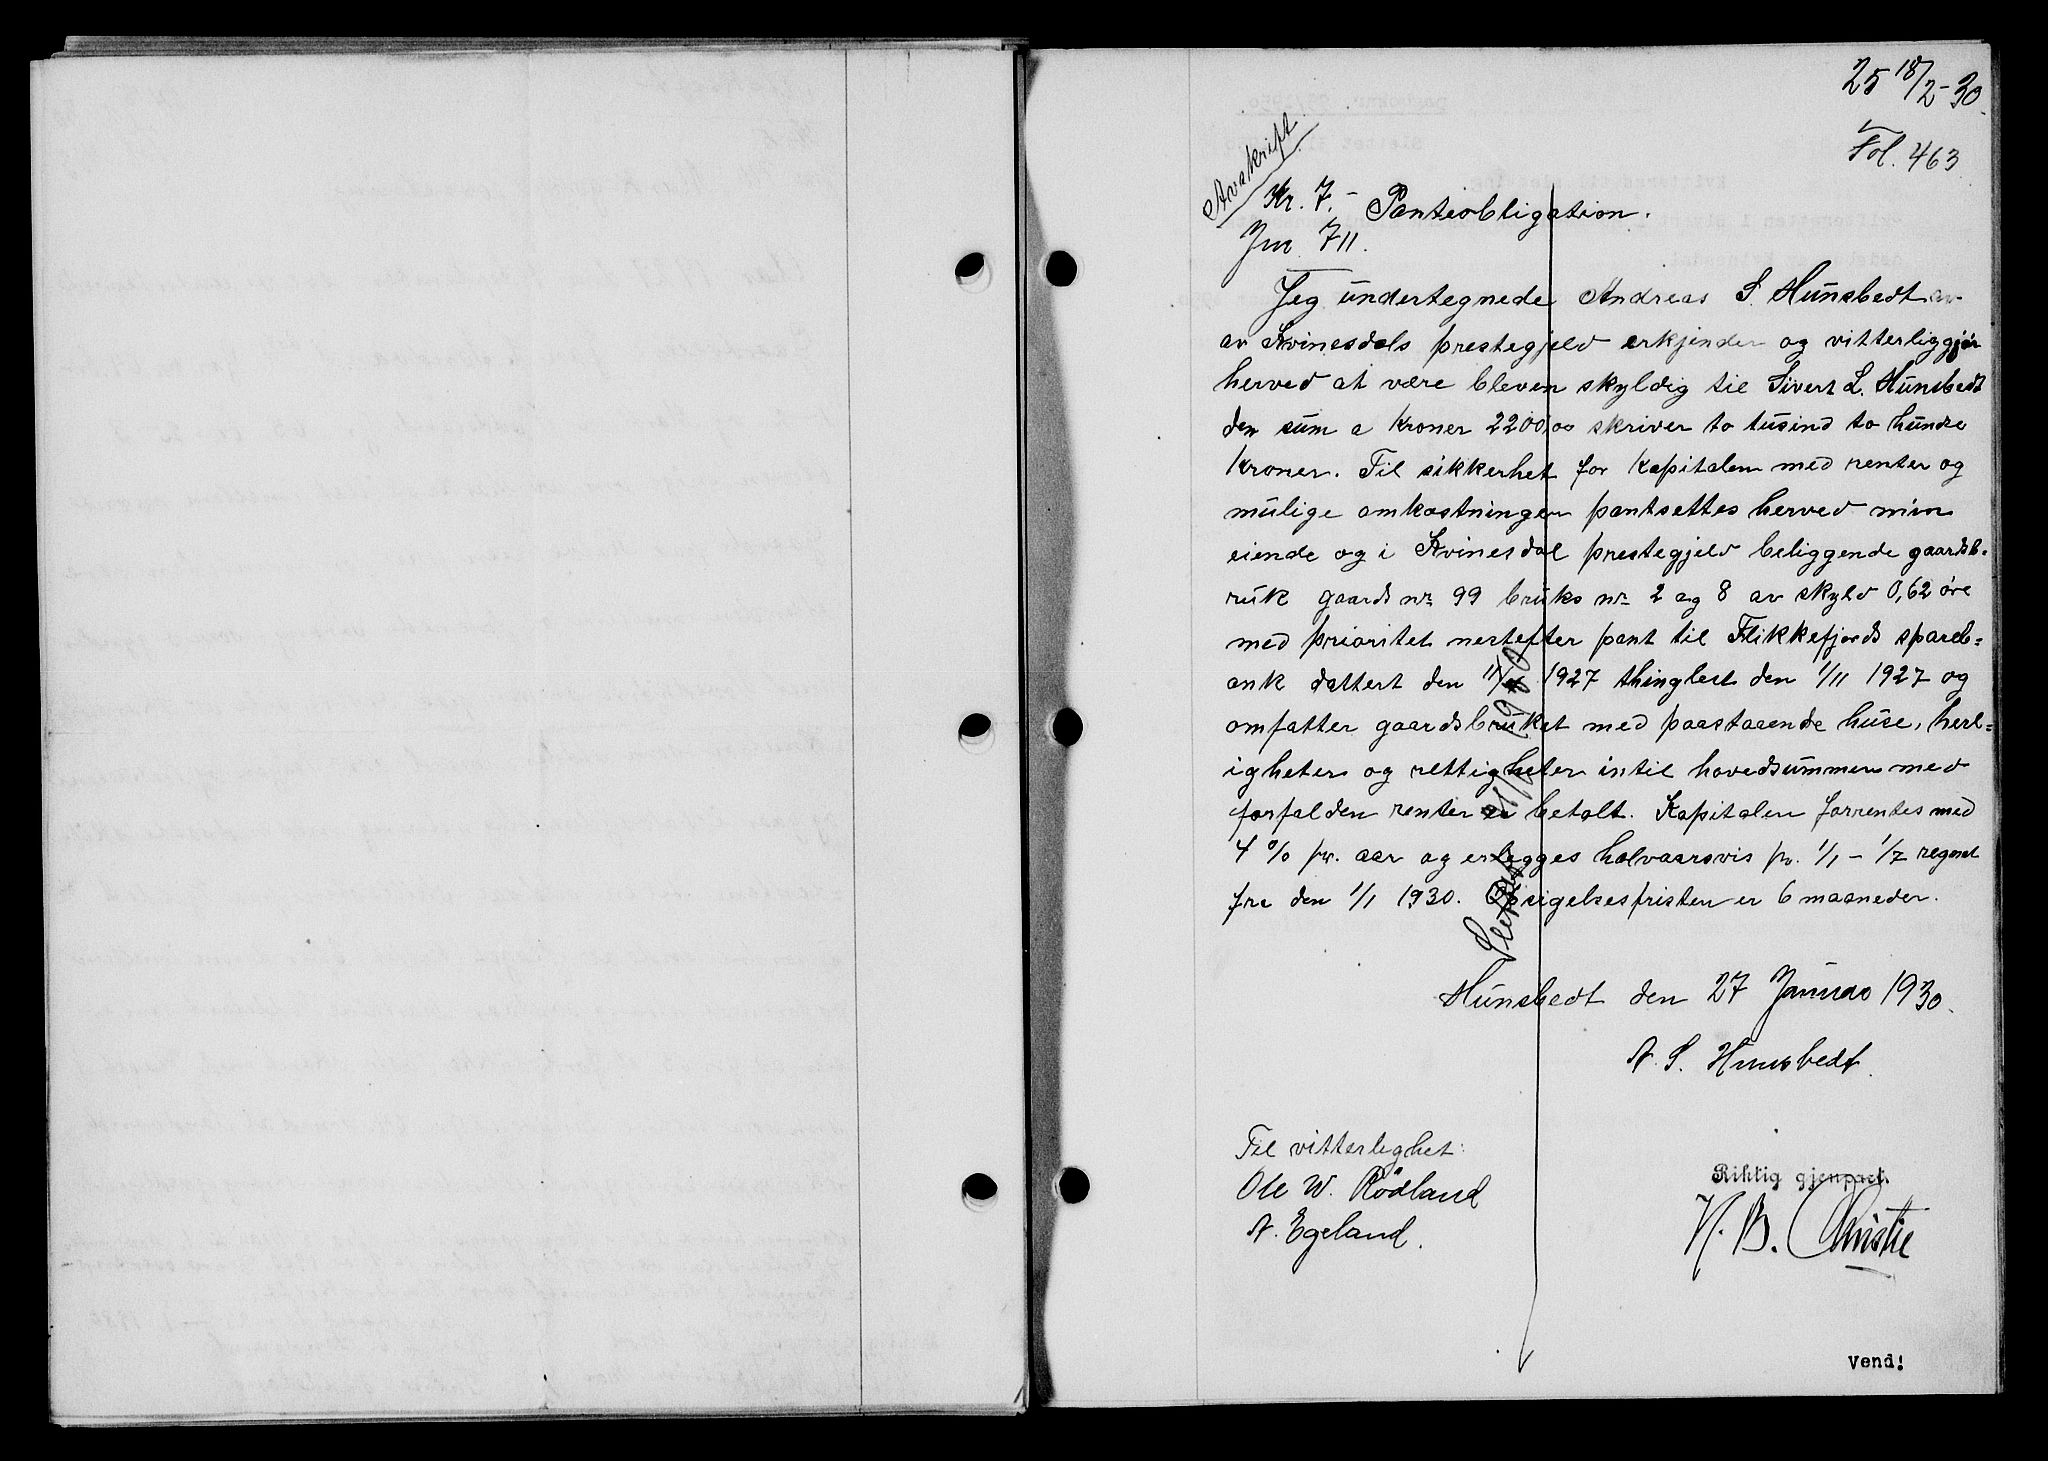 25 18/2-30.
Fol. 463
Avskrift.
Kr. 7.- Panteobligation.
Jnr 711.
Jeg undertegnede Andreas S. Hunsbedt av
av Kvinesdals prestegjeld erkjender og vitterliggjør
herved at være bleven skyldig til Sivert L. Hunsbedt
den sum a kroner 2200,00 skriver to tusind to hundre
kroner. Til sikkerhet for kapitalen med renter og
mulige omkostninger pantsettes herved min
eiende og i Kvinesdal prestegjeld beliggende gaardsb-
ruk gaards nr 99 bruks nr 2 og 8 av skyld 0,62 øre
med prioritet nestefter pant til Flikkefjords spareb=
ank dattert den 1927 thinglest den 1/11 1927 og
omfatter gaardsbruket med paastaaende huse, herl=
igheter og rettigheter intil hovedsummen med
forfalden renter er betalt. Kapitalen forrentes med
4 % pr. aar og erlegges halvaarsvis pr. 1/1 - 1/7 regnet
fra den 1/1 1930. Opsigelsesfristen er 6 maaneder.
Slettet
Hunsbedt den 27 Januar 1930.
A. S. Hunsbedt.
Til vitterleghet:
Ole W. Rödland
A. Egeland.
Riktig gjenpart.
H. B. Christie
Vend!